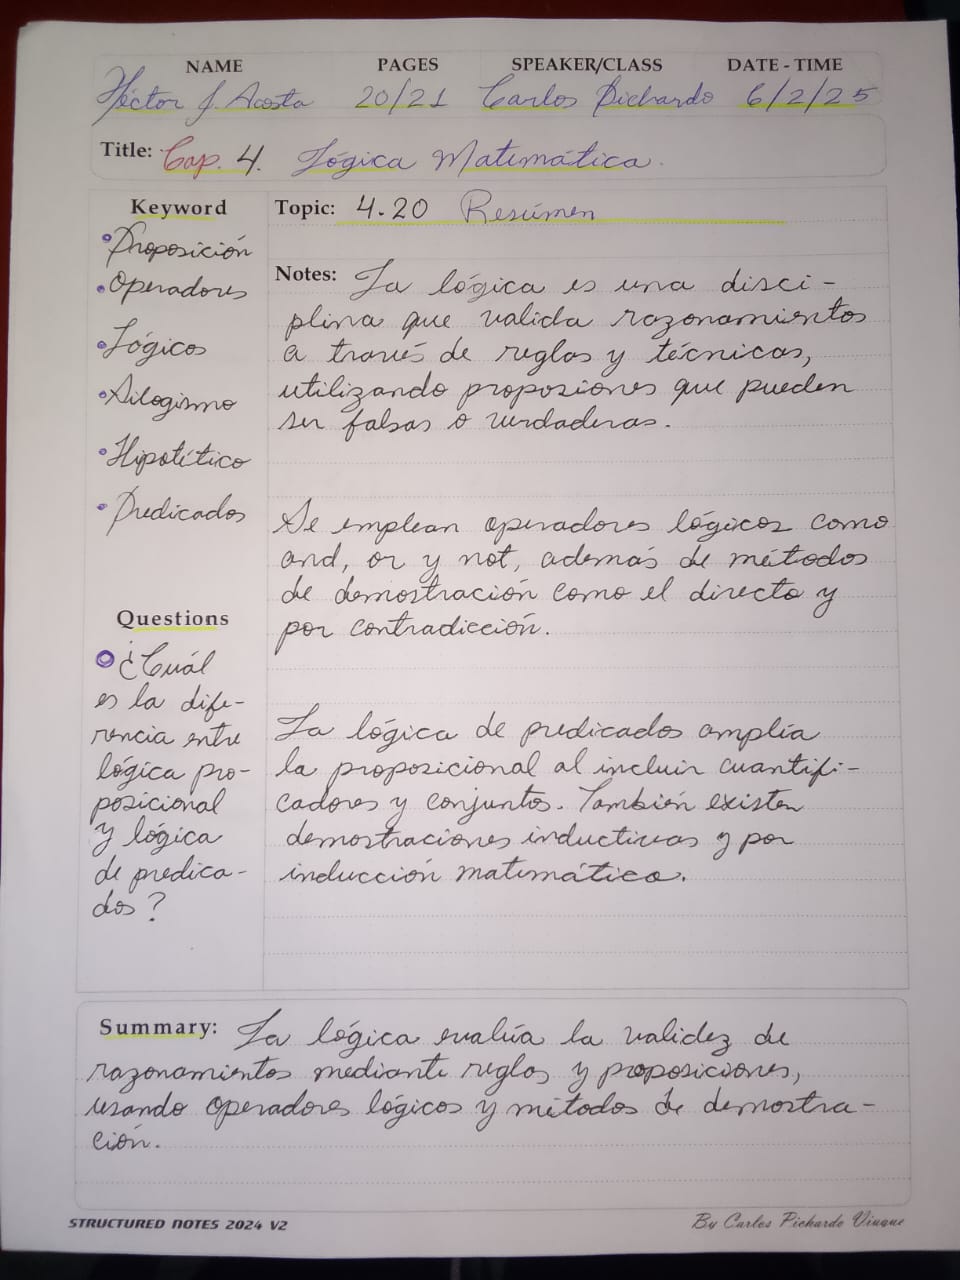 NAME PAGES SPEAKER/CLASS DATE - TIME
Héctor J. Acosta 20/21 Carlos Pichardo 6/2/25
Title: Cap. 4. Lógica Matemática.
Keyword
• Proposición
• Operadores
• Lógicos
• Silogismo
• Hipotético
• Predicados
Questions
• ¿Cuál
es la dife-
rencia entre
lógica pro-
posicional
y lógica
de predica-
dos?
Topic: 4.20 Resúmen
Notes: La lógica es una disci-
plina que valida razonamientos
a través de reglas y técnicas,
utilizando proposiones que pueden
ser falsas o verdaderas.
Se emplean operadores lógicos como
and, or y not, además de métodos
de demostración como el directo y
por contradicción.
La lógica de predicados amplía
la proposicional al incluir cuantifi-
cadores y conjuntos. También existen
demostraciones inductivas y por
inducción matemática.
Summary: La lógica evalúa la validez de
razonamientos mediante reglas y proposiciones,
usando operadores lógicos y métodos de demostra-
ción.
STRUCTURED NOTES 2024 V2 By Carlos Pichardo Viuque